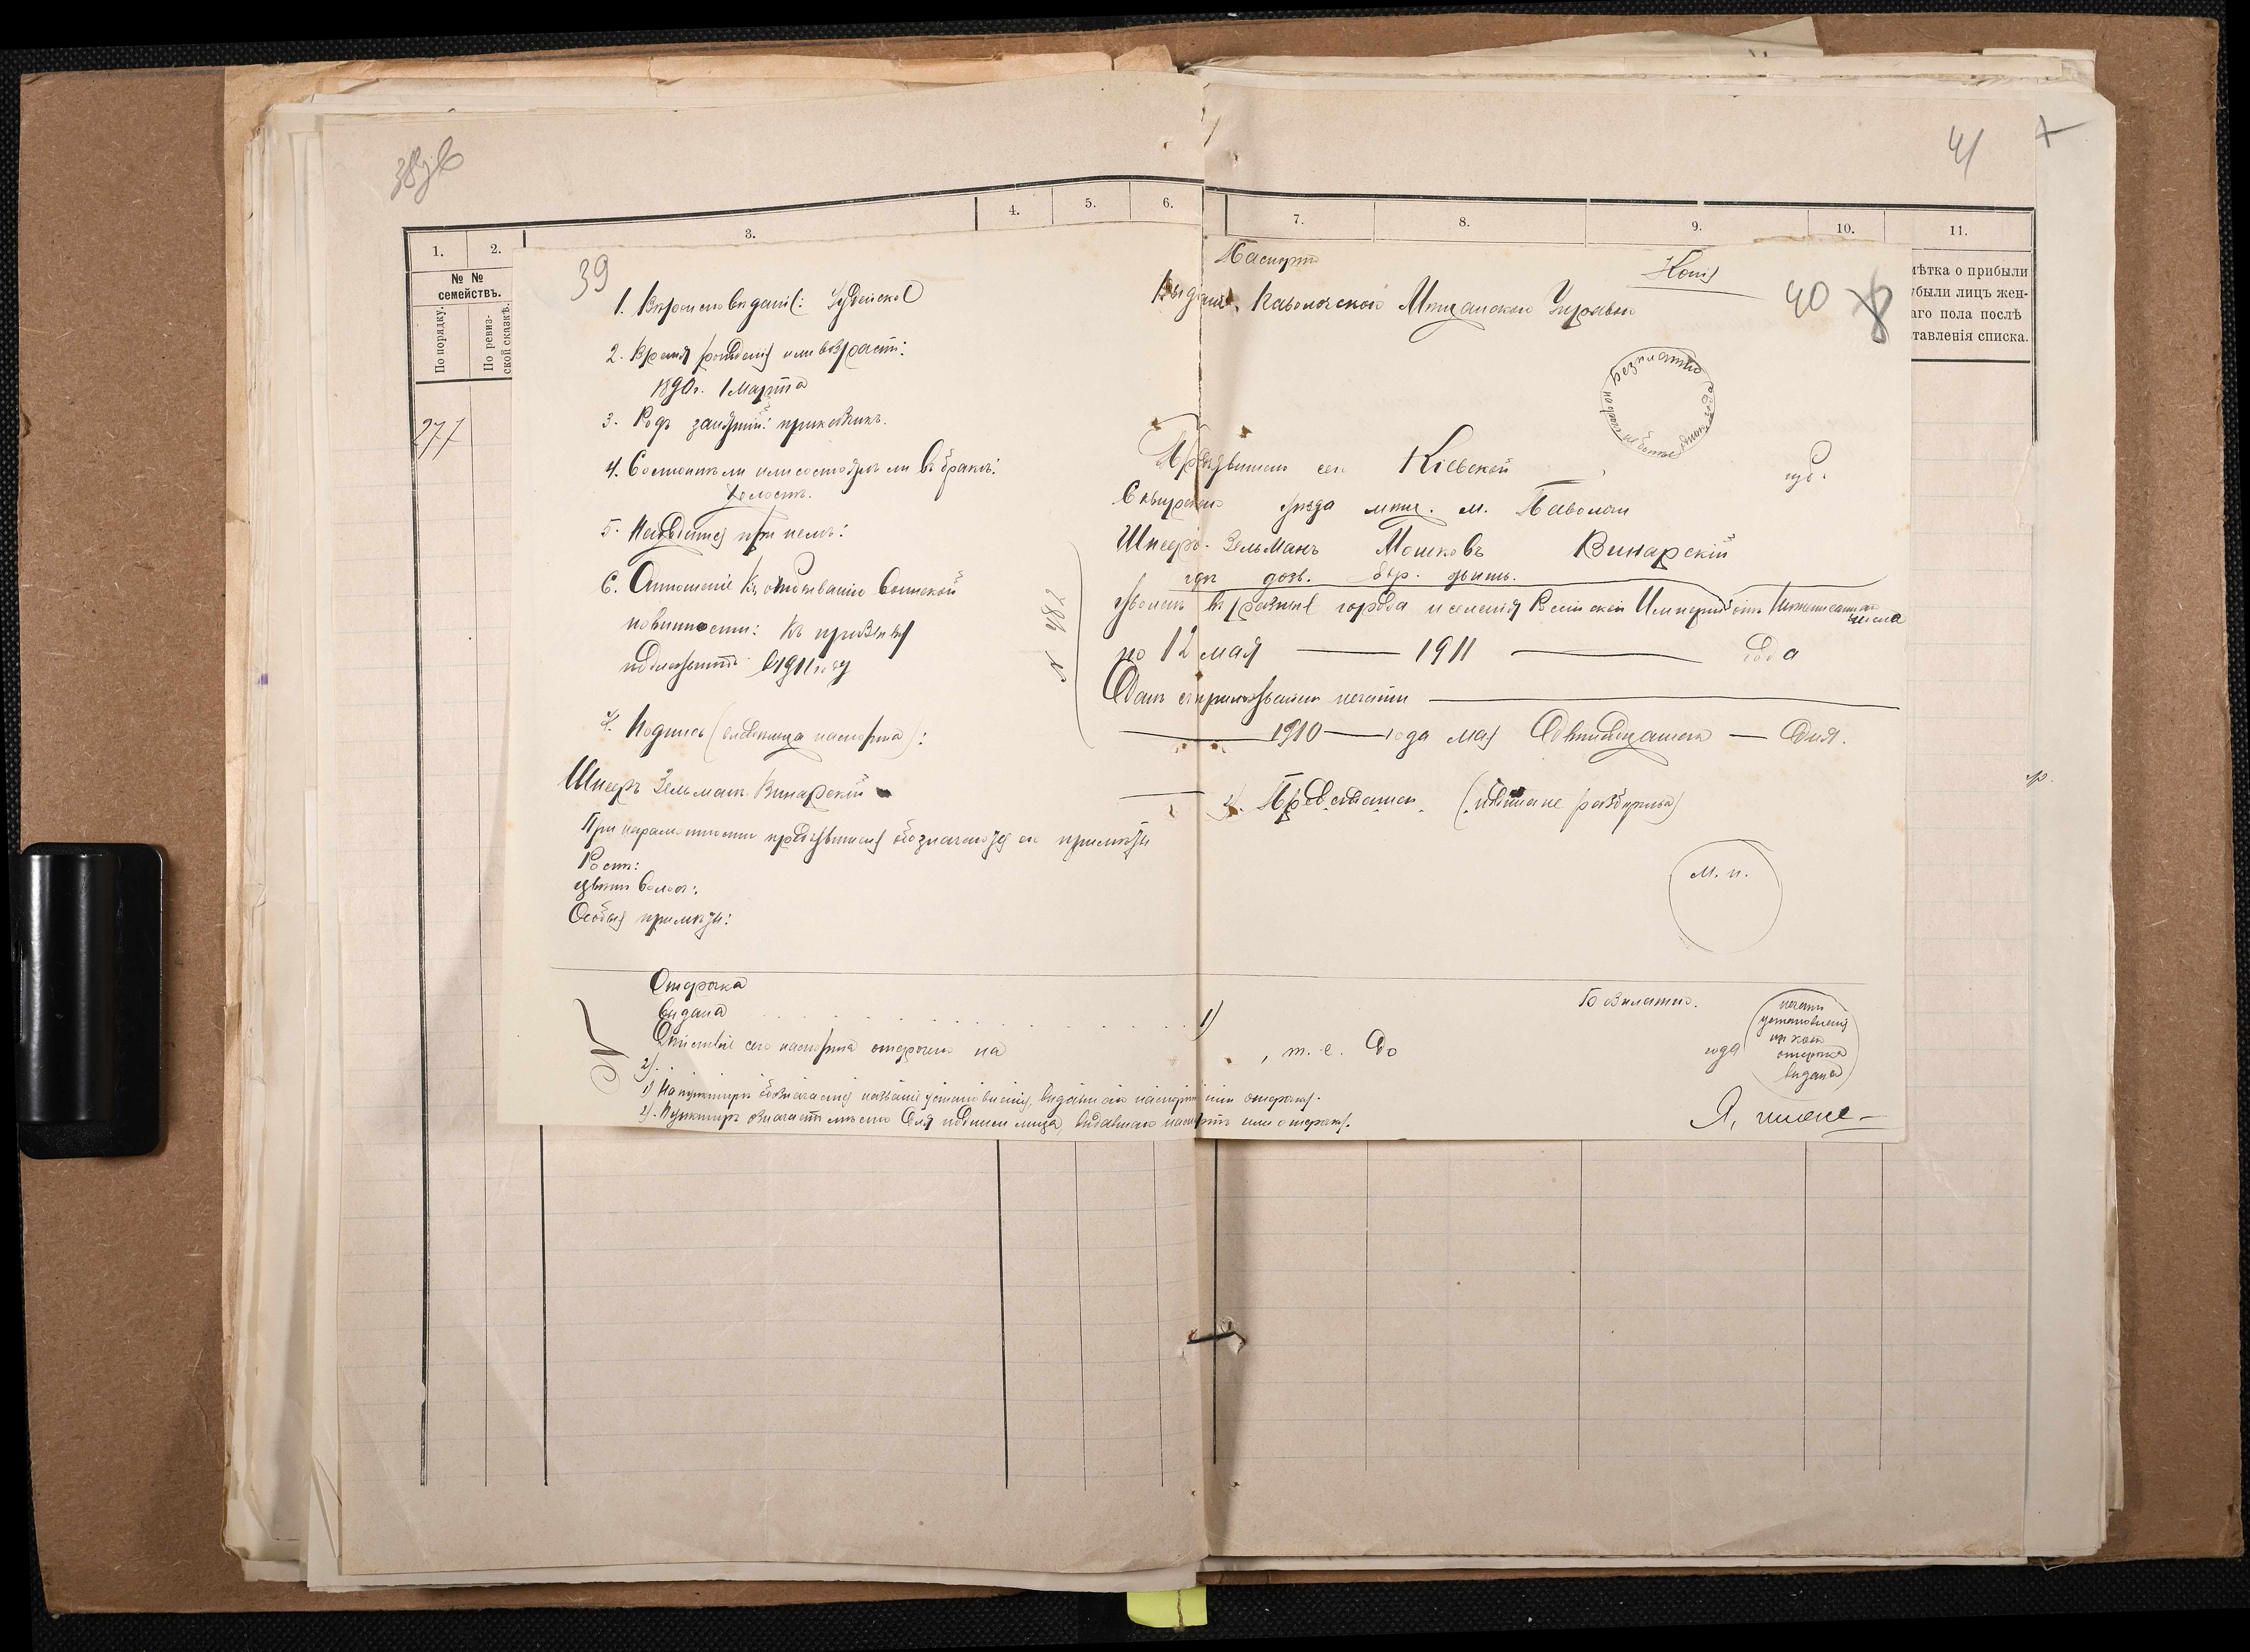 38
41
1. 2. 3. 4. 5. 6. 7. 8. 9. 10. 11.
№ №
семействъ.
По порядку.
По ревиз-
ской сказкѣ.
мѣтка о прибыли
убыли лицъ жен-
аго пола послѣ
тавленія списка.
277
39
1. Вѣроисповѣданіе: Іудейское
2. Время рожденія или возрастъ:
1890г. 1 Марта
3. Родъ занятій: прикащикъ.
4. Состоитъ ли или состоялъ ли въ бракѣ:
Холостъ.
5. Находятся при немъ:
6. Отношеніе къ отбыванію воинской
повинности: Къ призыву
подлежитъ въ 1911 году
7. Подпись (владѣльца паспорта):
Шнееръ Зельманъ Винарскій
При неграмотности предъявителя обозначаются его примѣты
Ростъ:
цвѣтъ волосъ:
Особыя примѣты:
Отсрочка
выдана 1)
Дѣйствіе сего паспорта отсрочено на , т. е. до года
2).
1) На пунктирѣ обозначается названіе установленія, выдавшаго паспортъ или отсрочку.
2). Пунктиръ означаетъ мѣсто для подписи лица, выдавшаго паспортъ или отсрочку.
Паспортъ
Копія
Выданъ. Паволочской Мѣщанской Управою
40
8
Безплатно
Предъявитель сего Кіевской губ.
Сквирскаго уѣзда мѣщ. м. Паволочи
Шнееръ-Зельманъ Мошковъ Винарскій
гдѣ дозв. евр. жит.
уволенъ въ разные города и селенія Россійской Имперіи отъ нижеписаннаго
числа
по 12 мая 1911 года
№ 482
Данъ съ приложеніемъ печати
1910 года мая двѣнадцатаго дня.
2). Предсѣдатель (подписи не разборчива)
М. п.
Безплатно.
печать
установленія
изъ коего
отсрочка
выдана